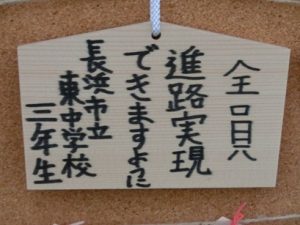 全員
進路実現
できますように
長浜市立
東中学校
三年生